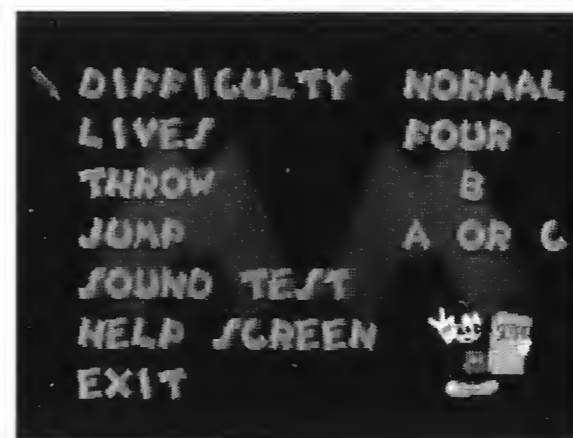 DIFFICULTY NORMAL
LIVES FOUR
THROW B
JUMP A OR C
SOUND TEST
HELP SCREEN
EXIT